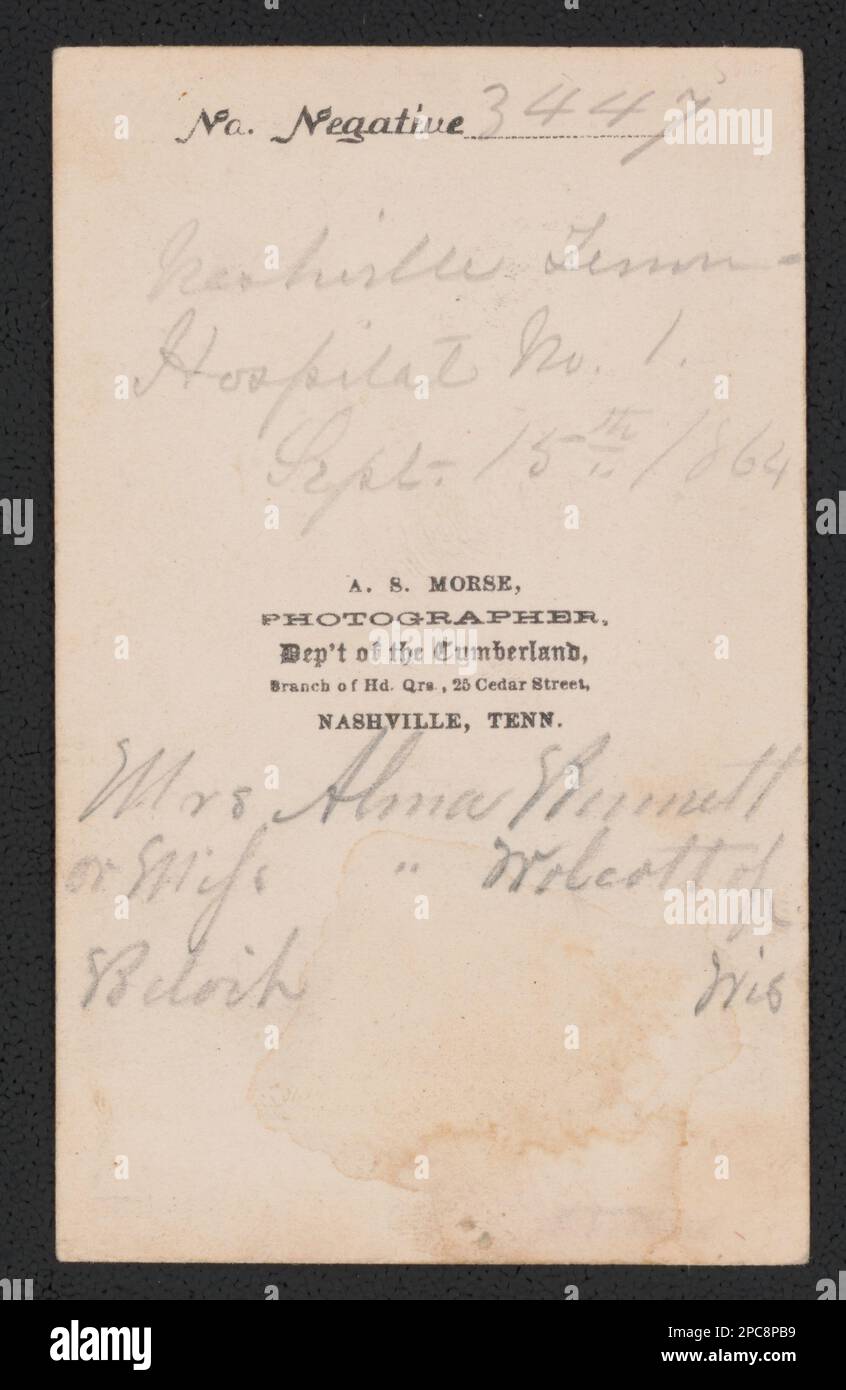 No. Negative 3447
Nashville Tenn-
Hospital No. 1.
Sept. 15th 1864
A. S. MORSE,
PHOTOGRAPHER,
Dep't of the Cumberland,
Branch of Hd. Qrs., 25 Cedar Street,
NASHVILLE, TENN.
Mrs Alma
or Miss " Wolcott of
Beloit Wis
alamy
Image ID: 2PC8PB9
www.alamy.com